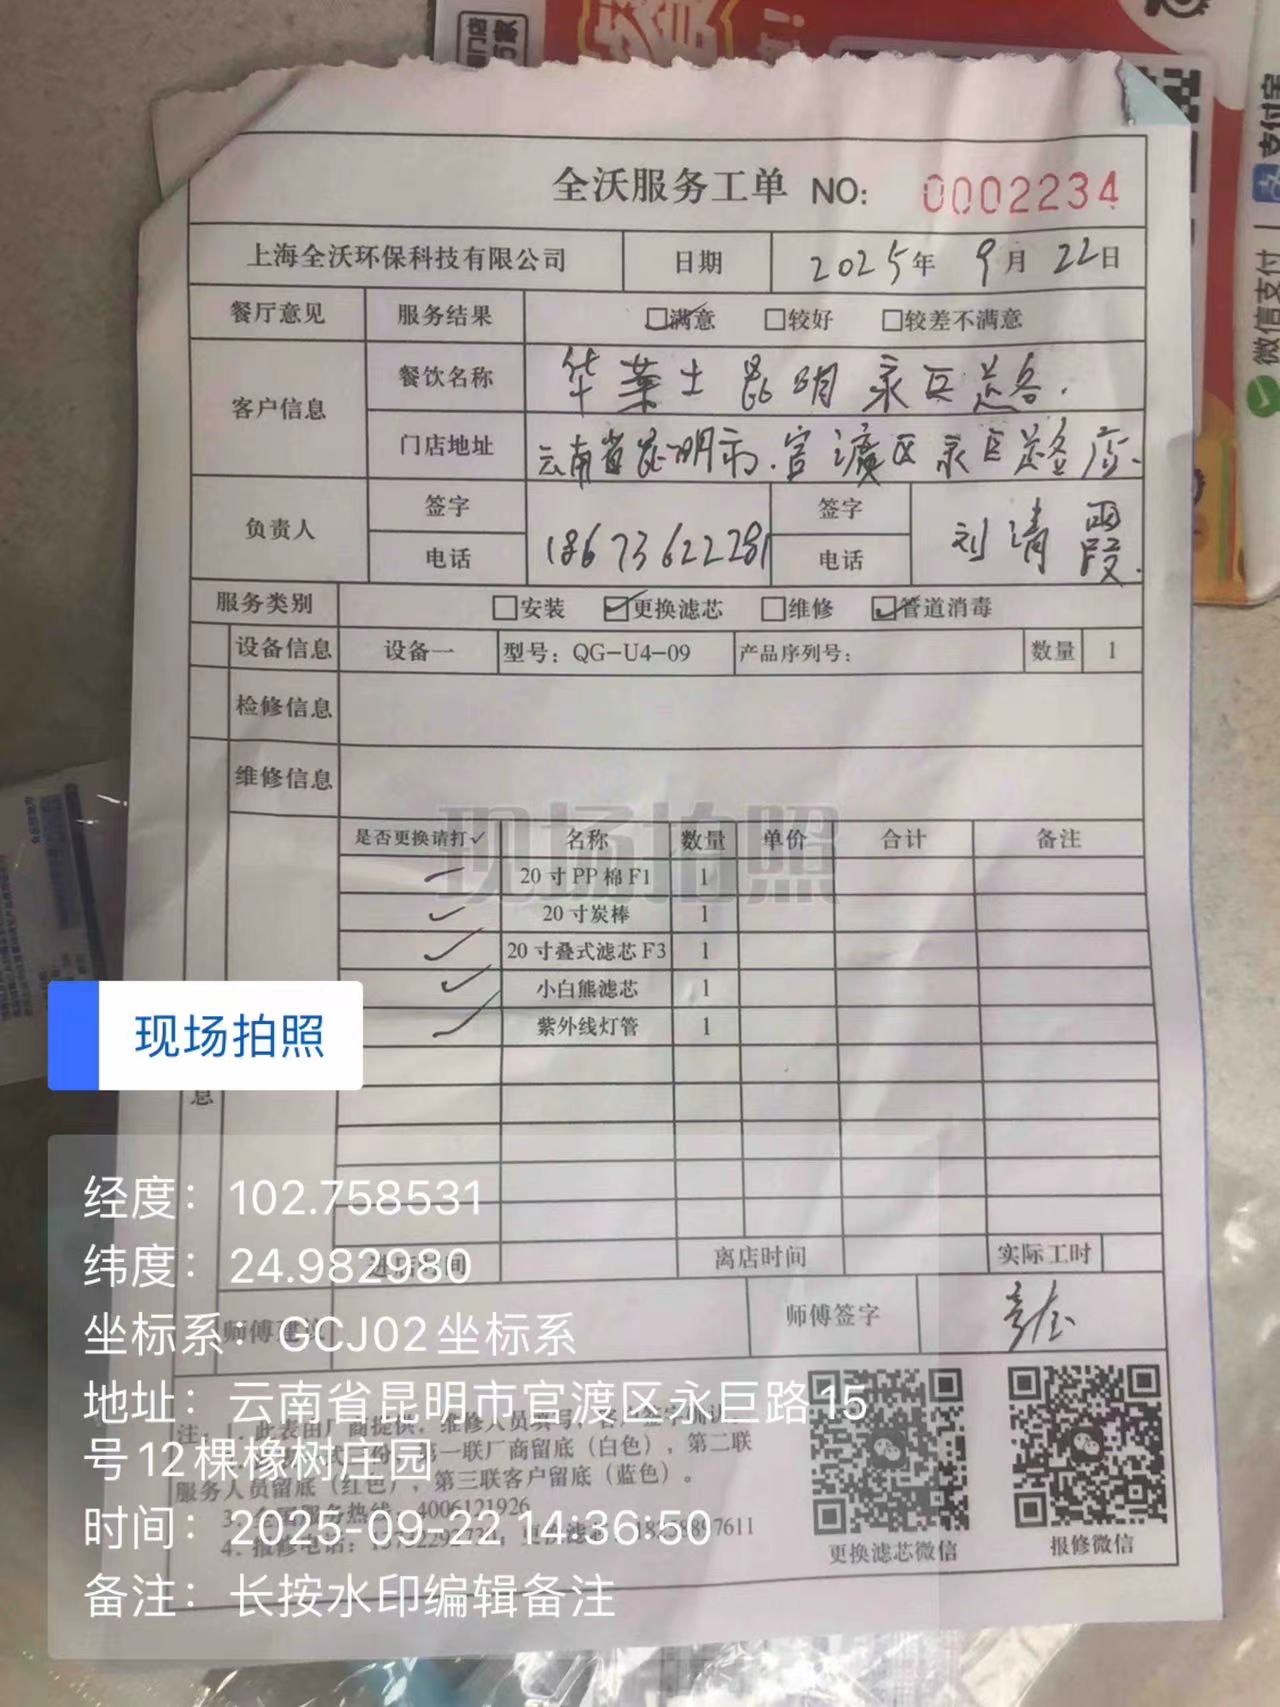 全沃服务工单 NO: 0002234
上海全沃环保科技有限公司 日期 2025年 9月 22日
餐厅意见 服务结果 满意 较好 较差不满意
客户信息 餐饮名称 华莱士昆明永巨路店.
门店地址 云南省昆明市.官渡区永巨路店.
负责人 签字 签字 刘清霞.
电话 18673622281 电话
服务类别 安装 更换滤芯 维修 管道消毒
设备信息 设备一 型号：QG-U4-09 产品序列号： 数量 1
检修信息
维修信息
现场拍照
是否更换请打✓ 名称 数量 单价 合计 备注
✓ 20寸PP棉F1 1
✓ 20寸炭棒 1
✓ 20寸叠式滤芯F3 1
✓ 小白熊滤芯 1
✓ 紫外线灯管 1
现场拍照
息
离店时间 实际工时
师傅建议 师傅签字
注：1. 此表由厂商提供，维修人员填写，
第一联厂商留底（白色），第二联
服务人员留底（红色），第三联客户留底（蓝色）。
4006121926
4. 报修电话：
更换滤芯微信 报修微信
经度：102.758531
纬度：24.982980
坐标系：GCJ02坐标系
地址：云南省昆明市官渡区永巨路15
号12棵橡树庄园
时间：2025-09-22 14:36:50
备注：长按水印编辑备注
支付宝
微信支付